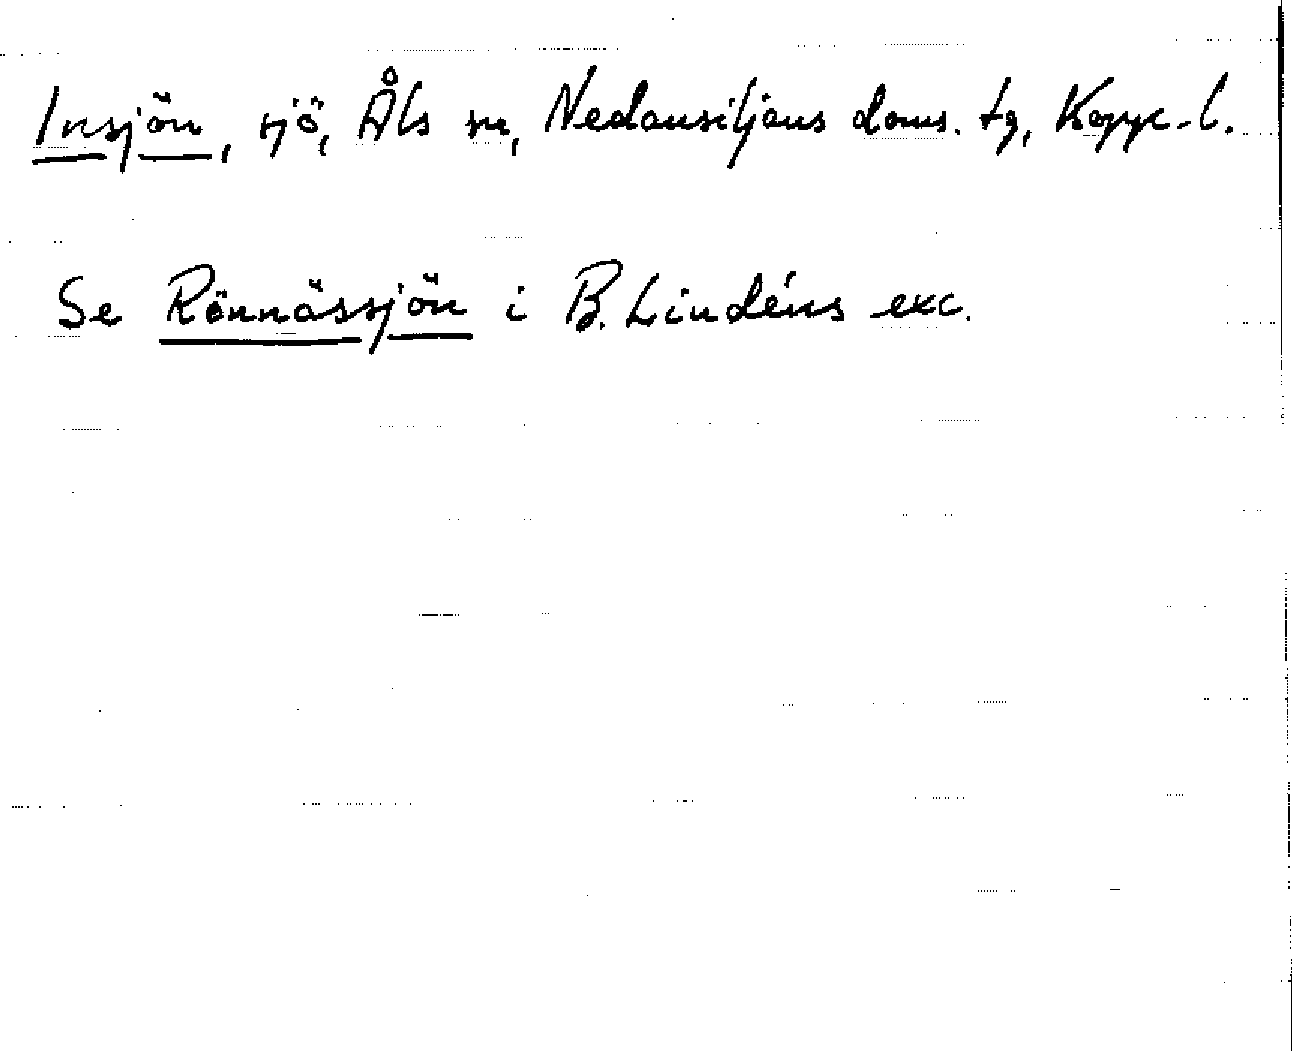 Insjön, sjö, Åls sn, Nedansiljans doms. tg, Kopp. l.
Se Rönnässjön i B. Lindéns exc.